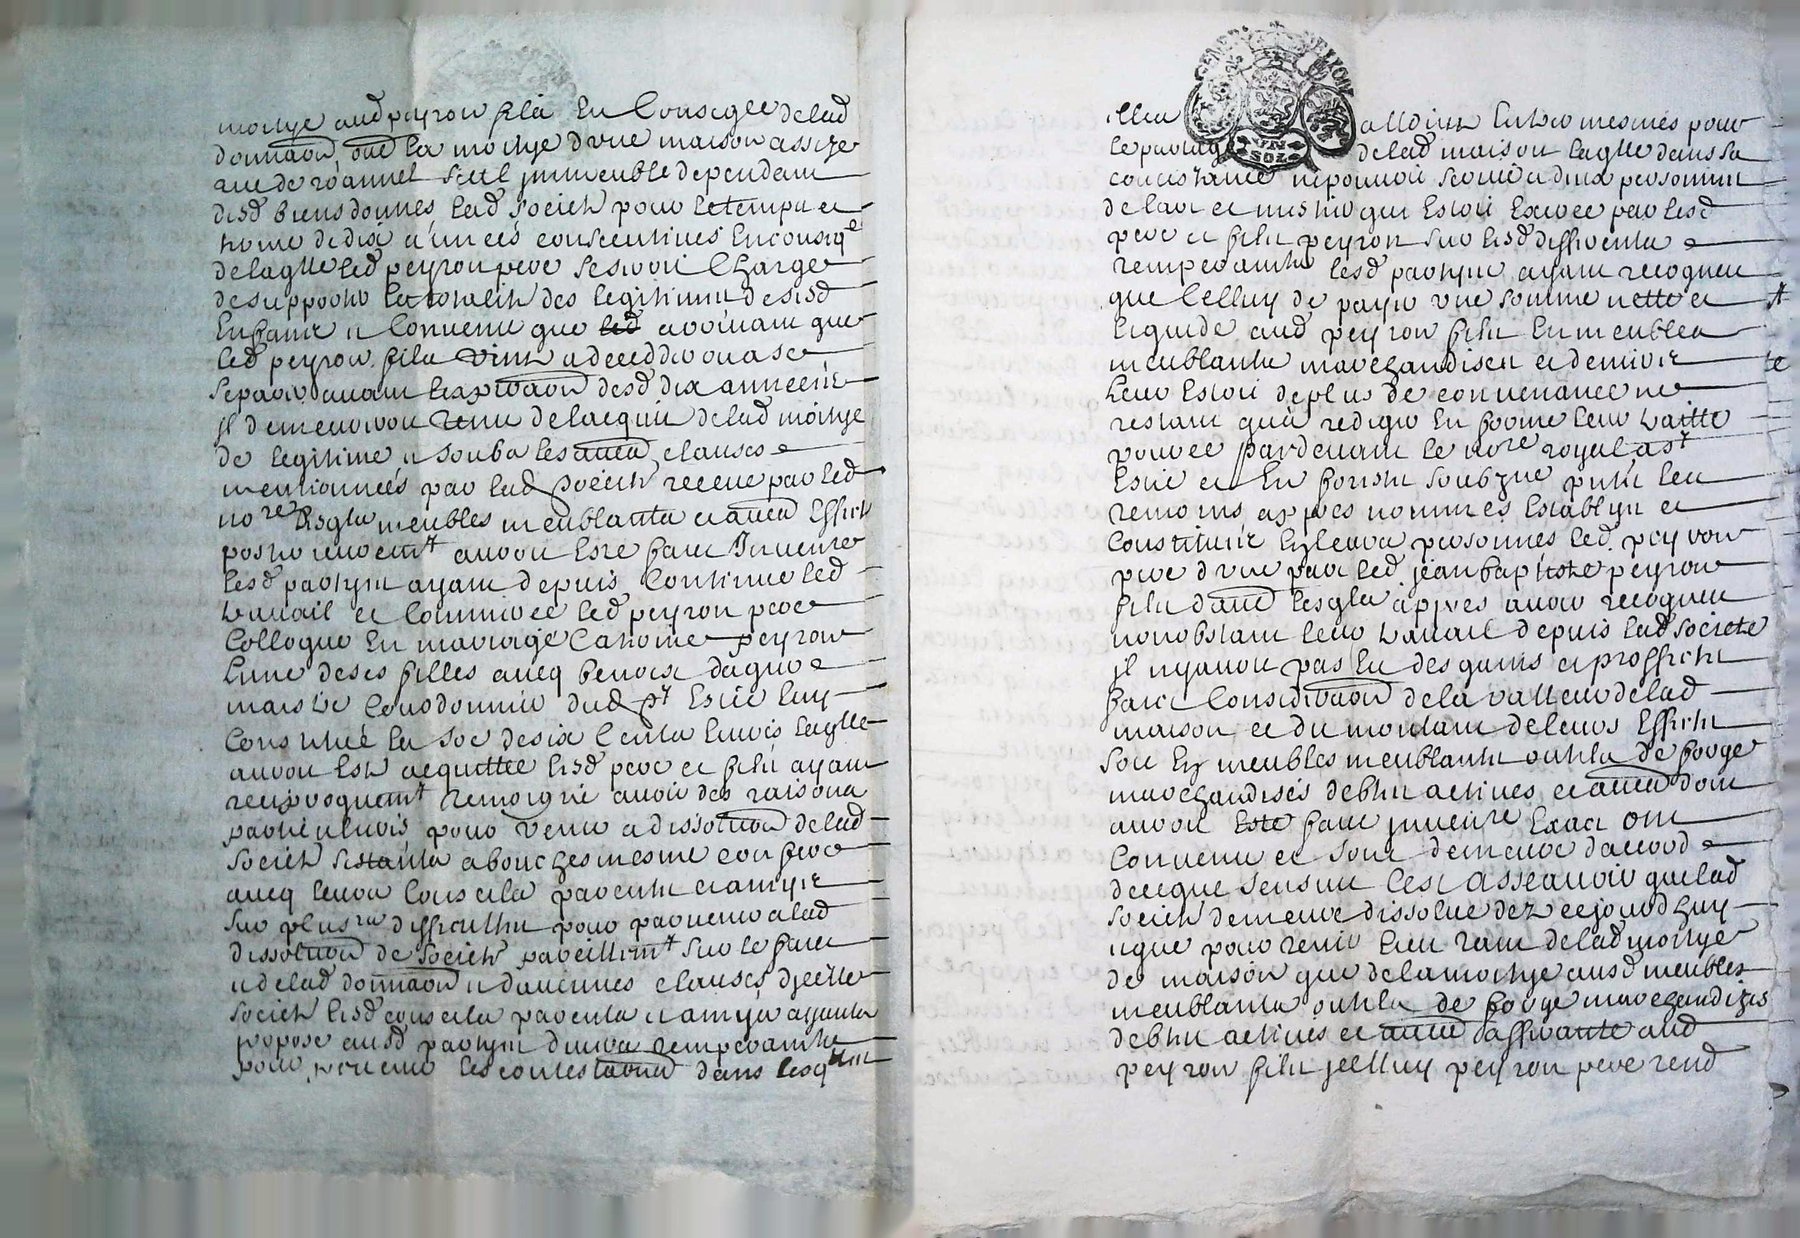 moitye aud peyron fils En Consequee de lad
donnaon, oue la moitye d'une maison assize
rue de roannet seul jmmeuble dependant
desd biens donnes lad societé pour le temps et
terme de dix années consecutives En conseq.e
de laqlle led peyron pere se seroit Chargé
de supporter la totalité des legitimes de sesd
Enfants et Convenu que avenant que
led peyron fils vint a deceder ou a se
separer avant lexpiraon desd dix années
jl demeureroit tenu de lacquit de lad moitye
de legitime et soubs les aues clauses
mentionnées par lad societé receue par led
no.re Lesqls meubles meublants et aues Effects
posterieurem.t auroit Esté fait Inventre
lesd partyes ayant depuis Continué led
travail et Commerce led peyron pere
Colloqué En mariage Catherine peyron
L'une de ses filles avec benoist dagnore
maistre Cordonnier dud S.t Estiene luy
Constitué la so.e de six Cents livres laqlle
auroit Esté acquittée lesd pere et fils ayant
reciproquem.t temoigné avoir des raisons
particulieres pour venir a dissoluon de lad
societé sestants abouchés mesme confere
avec leurs Conseils parents et amys
sur plus.rs difficultés pour parvenir a lad
dissoluon de societé pareillem.t sur le fait
et de lad donnaon et d'aucunes clauses djcelle
societé lesd conseils parents et amys ayants
propose ausd partyes divers temperaments
pour prevenir les contestaons dans lesq.lles
illes alloient Entrer mesmes pour
le partage de lad maison laqlle dans sa
consistance ne pouvoit servir a deux personnes
de lart et mestier qui Estoit Exercé par lesd
pere et fils peyron sur lesd differents
temperaments lesd partyes ayant recogneu
que Celluy de payer une somme nette et
liquide aud peyron fils En meubles
meublants marchandises et deniers
Leur Estoit de plus de convenance ne
restant qu'a rediger En forme leur traitté
pource pardevant le no.re royal a S.t
Estiene et En forests soubzne puis les
temoins apres nommés Establys et
Constitués En leurs personnes led peyron
pere d'une part led jean baptiste peyron
fils d'aue Lesqls apres avoir recogneu
nonobstant leur travail depuis lad societe
jl ny avoit pas Eu des gains et proffits
faict Consideraon de la valleur de lad
maison et du montant de leurs Effects
soit En meubles meublants outils de forge
marchandises debtes actives et aues dont
auroit Esté fait jnventre Exact ont
Convenu et sont demeure d'accord
de ce que sensuit Cest asseavoir que lad
societé demeure dissolue dez ce jourdhuy
et que pour tenir lieu tant de lad moitye
de maison que de la moitye ausd meubles
meublants outils de forge marchandizes
debtes actives et aues afferante aud
peyron fils jcelluy peyron pere rend
GENER
UN
SOL